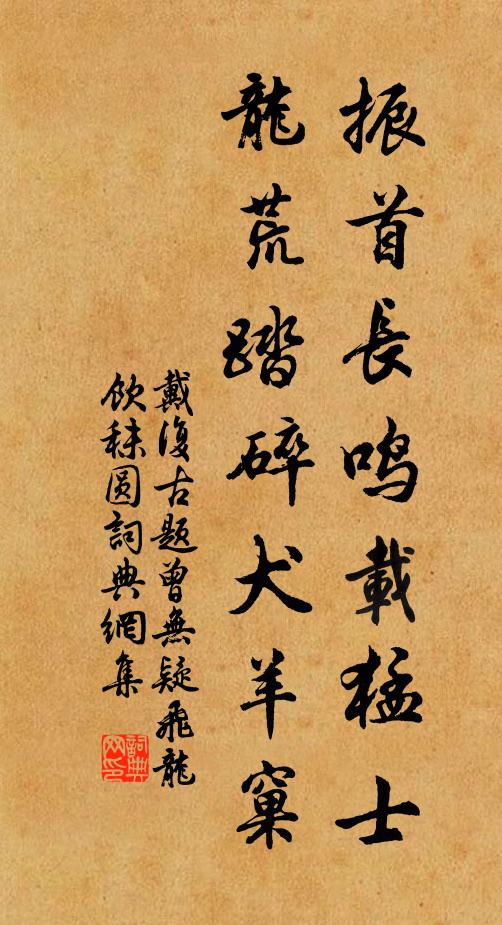 振首長鳴載猛士
龍荒踏碎犬羊窠
戴復古題曾無疑飛龍
飲秣圖詞典網集
詞典网印